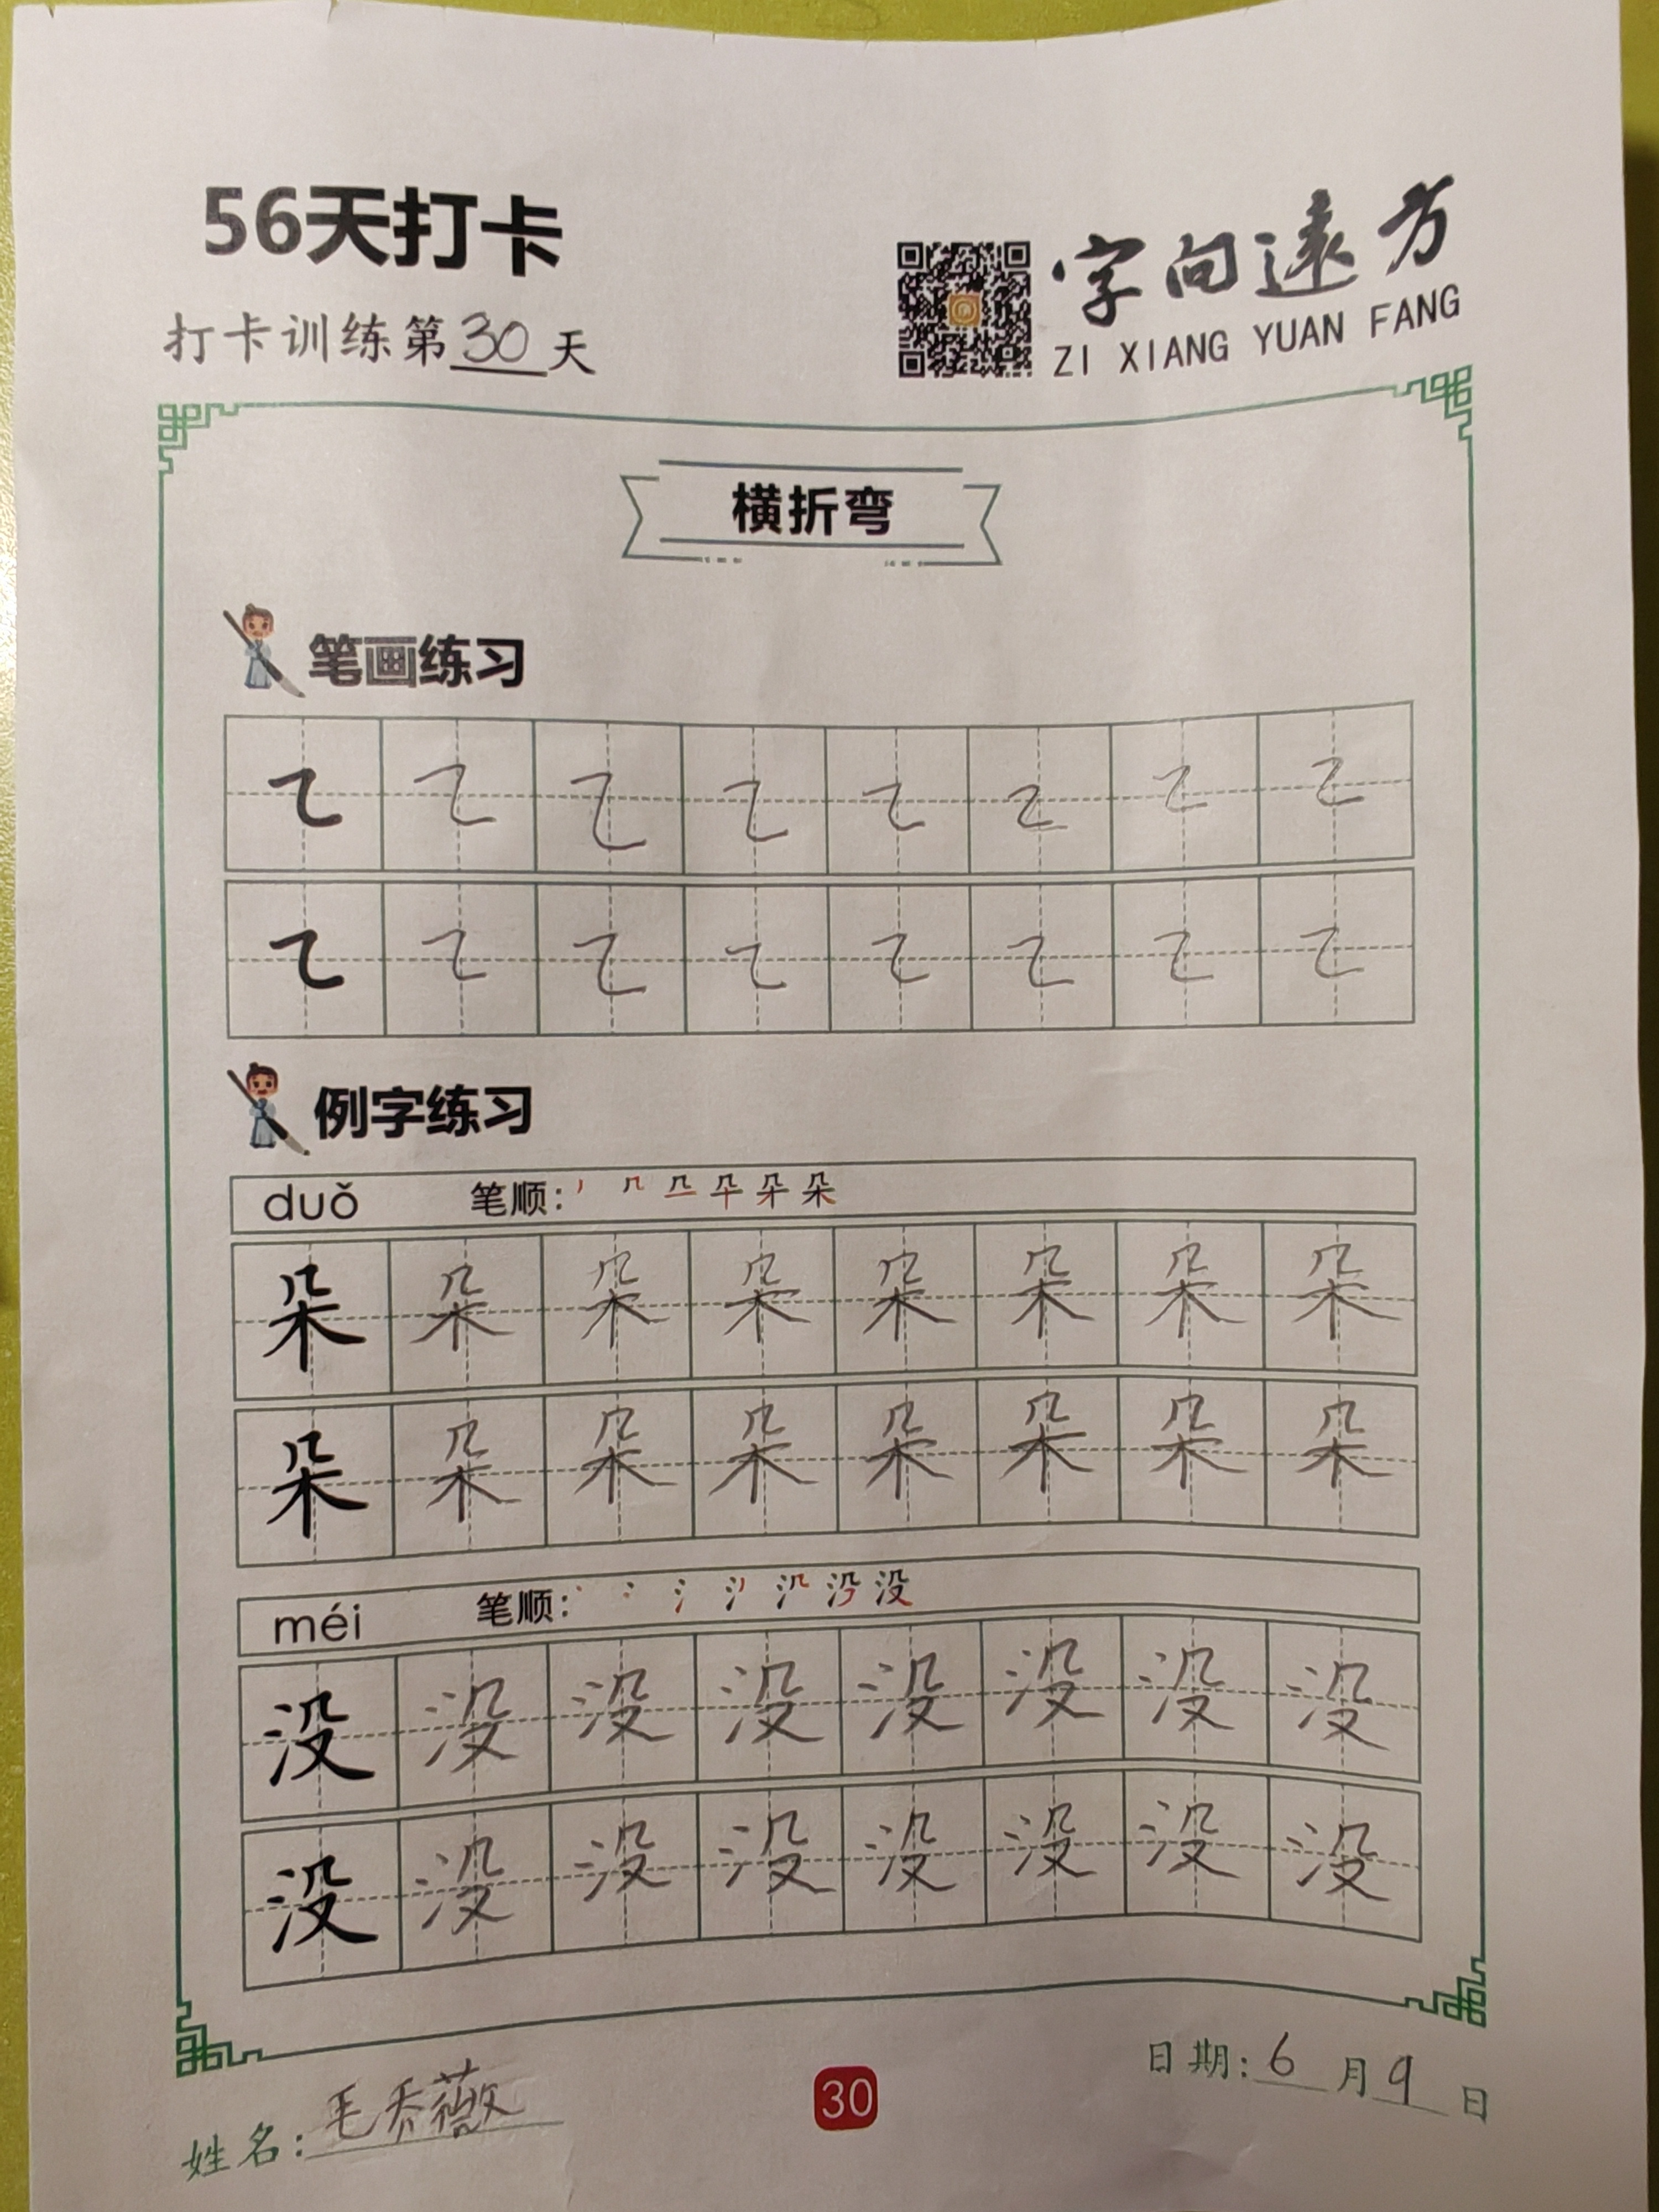 56天打卡
打卡训练第30天
字向遠方
ZI XIANG YUAN FANG
横折弯
笔画练习
例字练习
duǒ 笔顺:
朵 朵 朵 朵 朵 朵 朵 朵
朵 朵 朵 朵 朵 朵 朵 朵
méi 笔顺:
没 没 没 没 没 没 没 没
没 没 没 没 没 没 没 没
姓名:毛乔薇
30
日期:6月9日